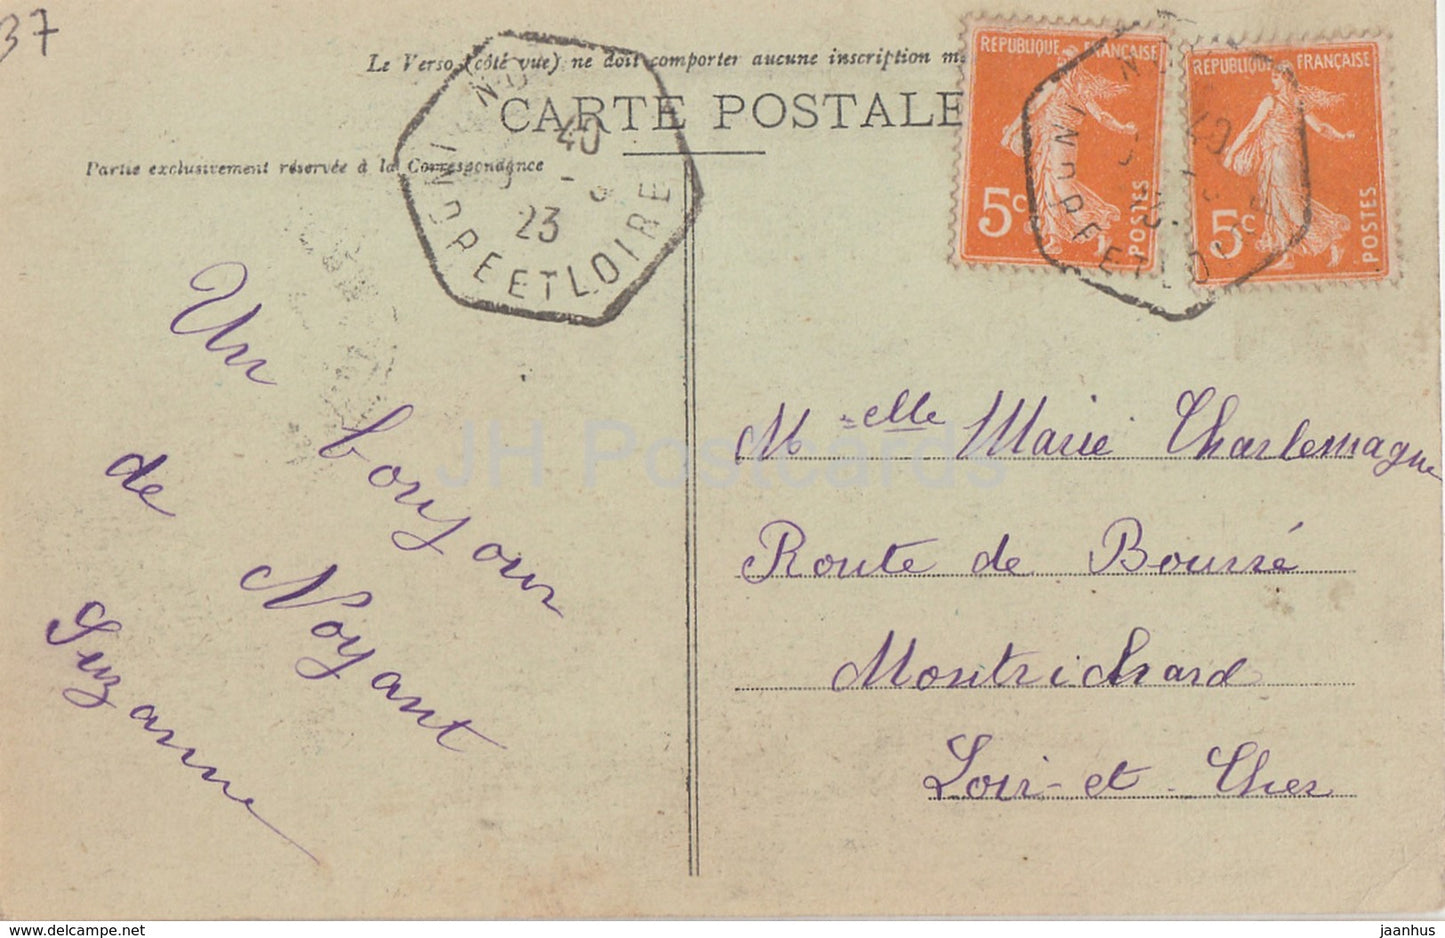 37
Le Verso (côté vue) ne doit comporter aucune inscription
CARTE POSTALE
Partie exclusivement réservée à la Correspondance
RÉPUBLIQUE FRANÇAISE
5c
POSTES
RÉPUBLIQUE FRANÇAISE
5c
POSTES
40
23
ET LOIRE
Un bonjour
de Noyant
Suzanne
Melle Marie Charlemagne
Route de Bourré
Montrichard
Loir-et-Cher
JH Postcards
www.delcampe.net
jaanhus